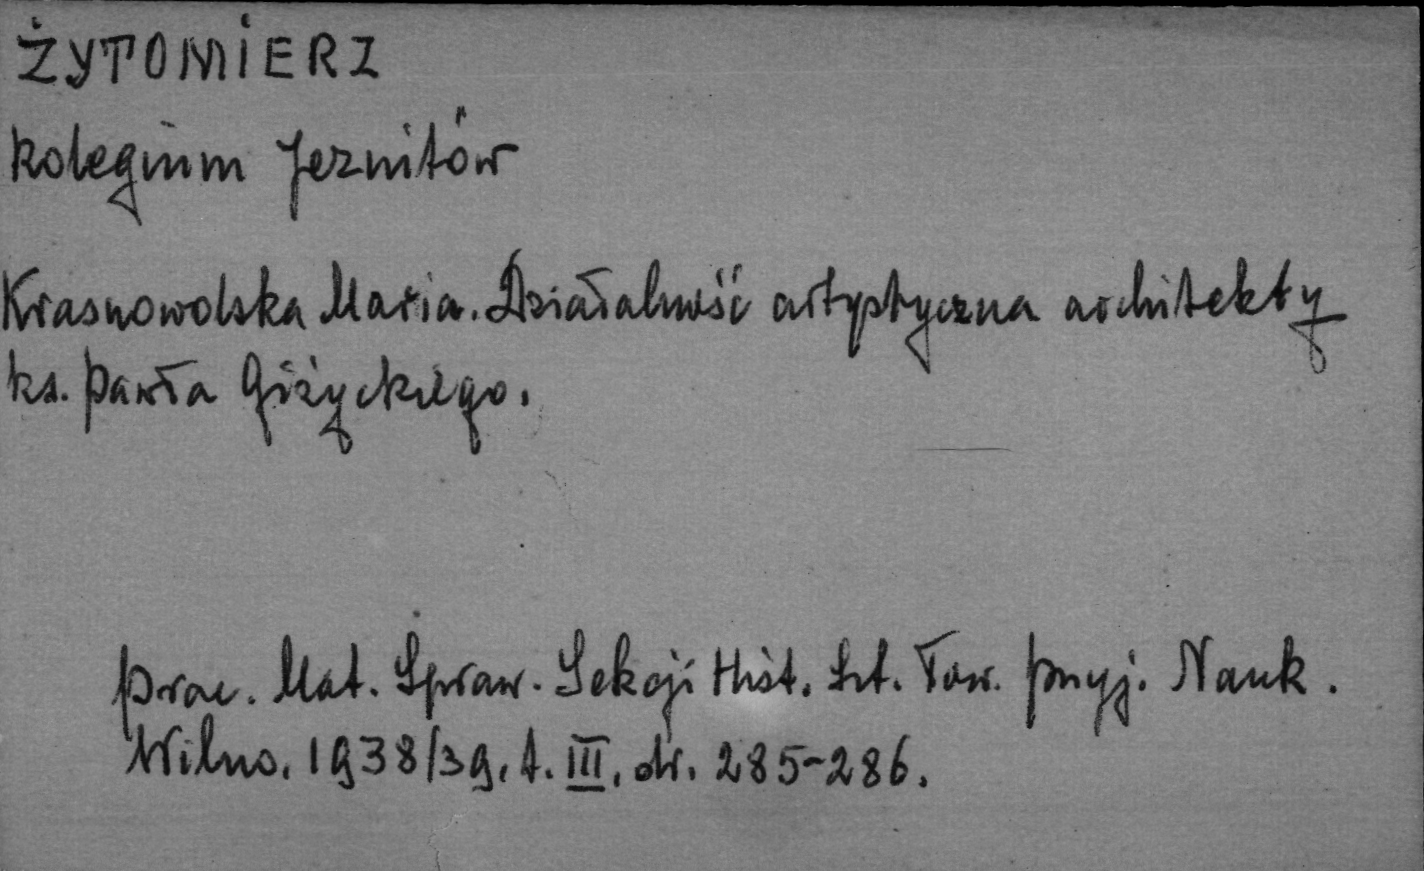 ŻYTOMIERZ
kolegium Jezuitów
Krasnowolska Maria. Działalność artystyczna architekty
ks. Pawła Giżyckiego.
Prac. Mat. Spraw. Sekcji Hist. Szt. Tow. Przyj. Nauk.
Wilno. 1938/39. t. III. str. 285-286.